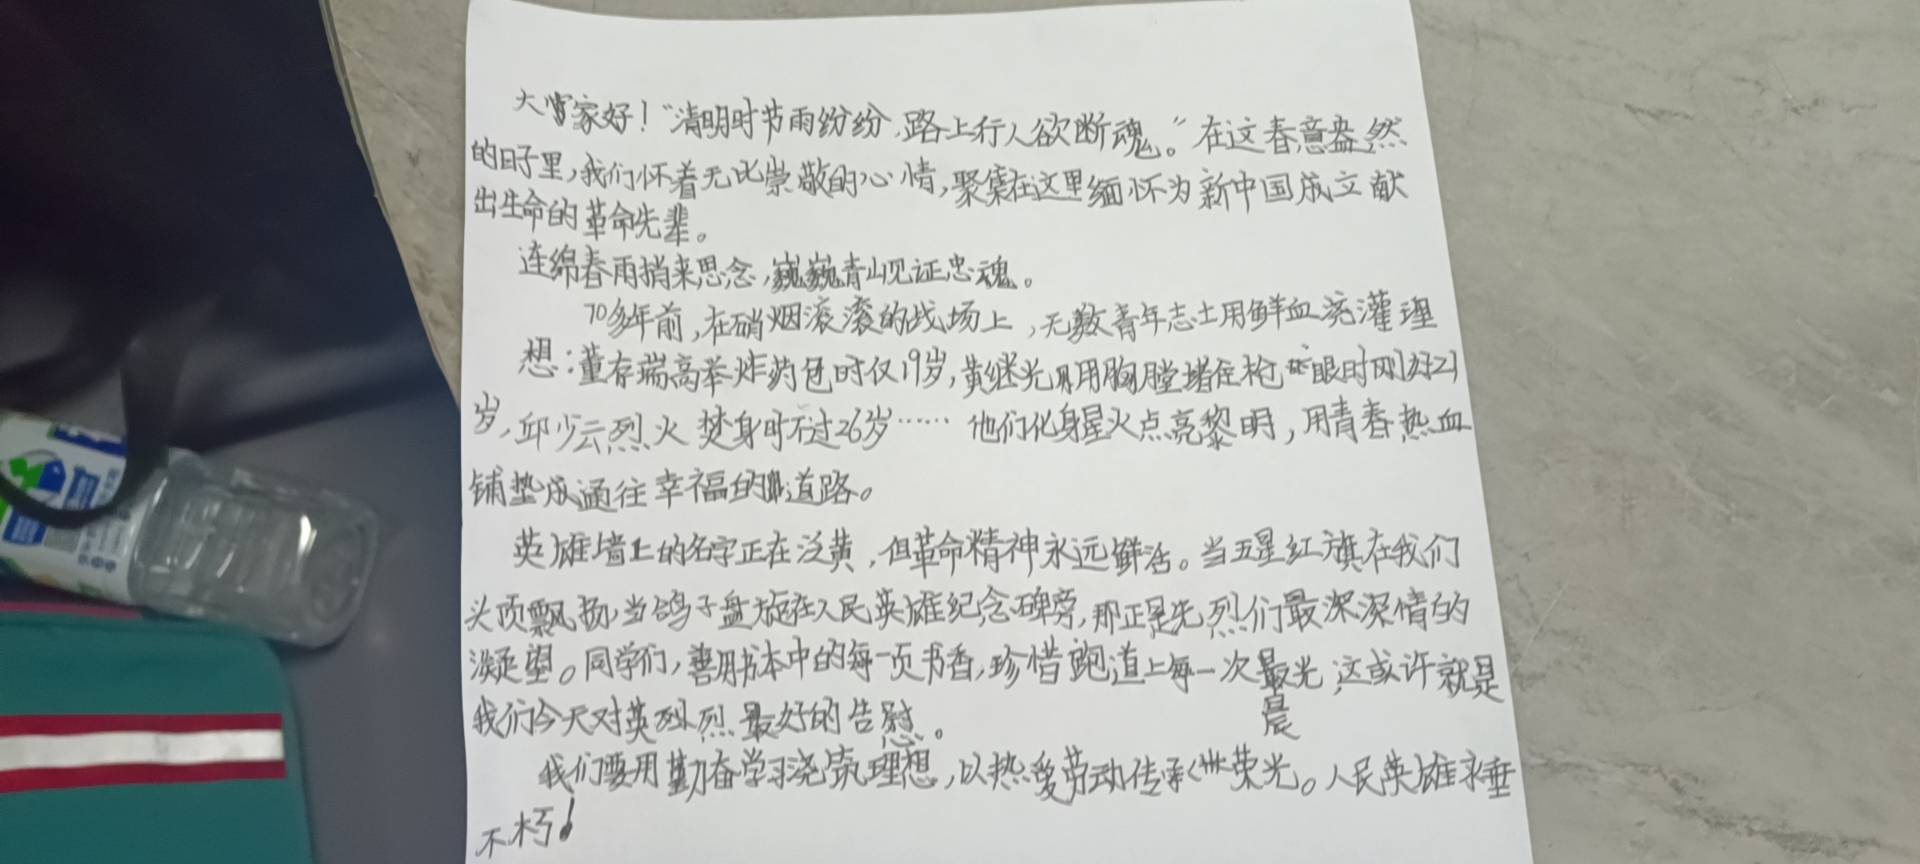 大家好！“清明时节雨纷纷，路上行人欲断魂。”在这春意盎然
的日子里，我们怀着无比崇敬的心情，聚集在这里缅怀为新中国成立献
出生命的革命先辈。
连绵春雨捎来思念，巍巍青山见证忠魂。
70多年前，在硝烟滚滚的战场上，无数青年志士用鲜血浇灌理
想：董存瑞高举炸药包时仅19岁，黄继光用胸膛堵住枪眼时刚好21
岁，邱少云烈火焚身时不过26岁……他们化身星火点亮黎明，用青春热血
铺垫成通往幸福的道路。
英雄墙上的名字正在泛黄，但革命精神永远鲜活。当五星红旗在我们
头顶飘扬，当鸽子盘旋在人民英雄纪念碑旁，那正是先烈们最深深情的
凝望。同学们，善用书本中的每一页书香，珍惜跑道上每一次晨光，这或许就是
我们今天对英烈最好的告慰。
我们要用勤奋学习浇筑理想，以热爱劳动传承荣光。人民英雄永垂
不朽！